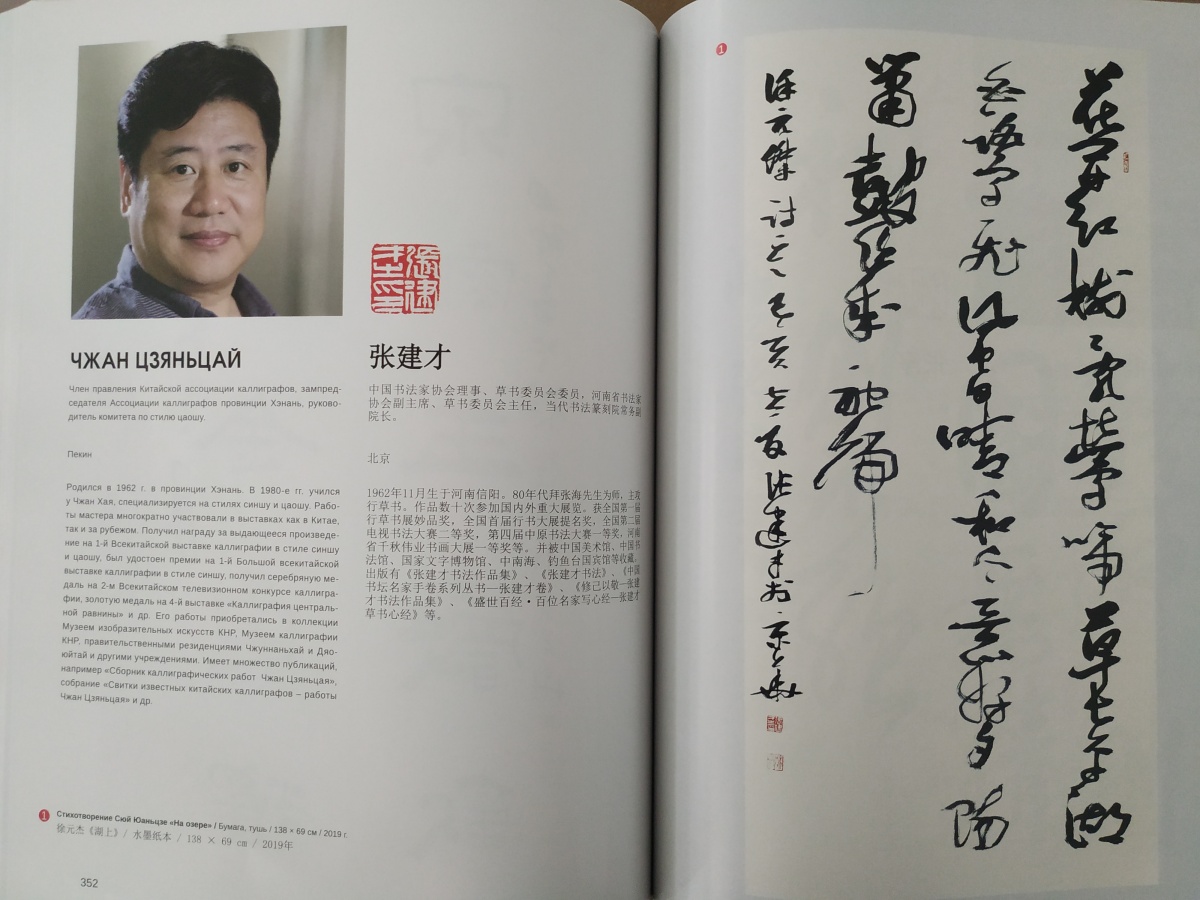 ЧЖАН ЦЗЯНЬЦАЙ
Член правления Китайской ассоциации каллиграфов, зампред-
седателя Ассоциации каллиграфов провинции Хэнань, руково-
дитель комитета по стилю цаошу.
Пекин
Родился в 1962 г. в провинции Хэнань. В 1980-е гг. учился
у Чжан Хая, специализируется на стилях синшу и цаошу. Рабо-
ты мастера многократно участвовали в выставках как в Китае,
так и за рубежом. Получил награду за выдающееся произведе-
ние на 1-й Всекитайской выставке каллиграфии в стиле синшу
и цаошу, был удостоен премии на 1-й Большой всекитайской
выставке каллиграфии в стиле синшу, получил серебряную ме-
даль на 2-м Всекитайском телевизионном конкурсе каллигра-
фии, золотую медаль на 4-й выставке «Каллиграфия централь-
ной равнины» и др. Его работы приобретались в коллекции
Музеем изобразительных искусств КНР, Музеем каллиграфии
КНР, правительственными резиденциями Чжуннаньхай и Дяо-
юйтай и другими учреждениями. Имеет множество публикаций,
например «Сборник каллиграфических работ Чжан Цзяньцая»,
собрание «Свитки известных китайских каллиграфов – работы
Чжан Цзяньцая» и др.
張建才印
张建才
中国书法家协会理事、草书委员会委员，河南省书法家
协会副主席、草书委员会主任，当代书法篆刻院常务副
院长。
北京
1962年11月生于河南信阳。80年代拜张海先生为师，主攻
行草书。作品数十次参加国内外重大展览。获全国第一届
行草书展妙品奖，全国首届行书大展提名奖，全国第二届
电视书法大赛二等奖，第四届中原书法大赛一等奖，河南
省千秋伟业书画大展一等奖等。并被中国美术馆、中国书
法馆、国家文字博物馆、中南海、钓鱼台国宾馆等收藏。
出版有《张建才书法作品集》、《张建才书法》、《中国
书坛名家手卷系列丛书—张建才卷》、《修己以敬—张建
才书法作品集》、《盛世百经·百位名家写心经—张建才
草书心经》等。
1 Стихотворение Сюй Юаньцзе «На озере» / Бумага, тушь / 138 × 69 см / 2019 г.
徐元杰《湖上》/ 水墨纸本 / 138 × 69 cm / 2019年
352
1
花開紅樹亂鶯啼草長平湖
白鷺飛風日晴和人意好夕陽
簫鼓幾船歸
徐元傑詩一首己亥張建才於京